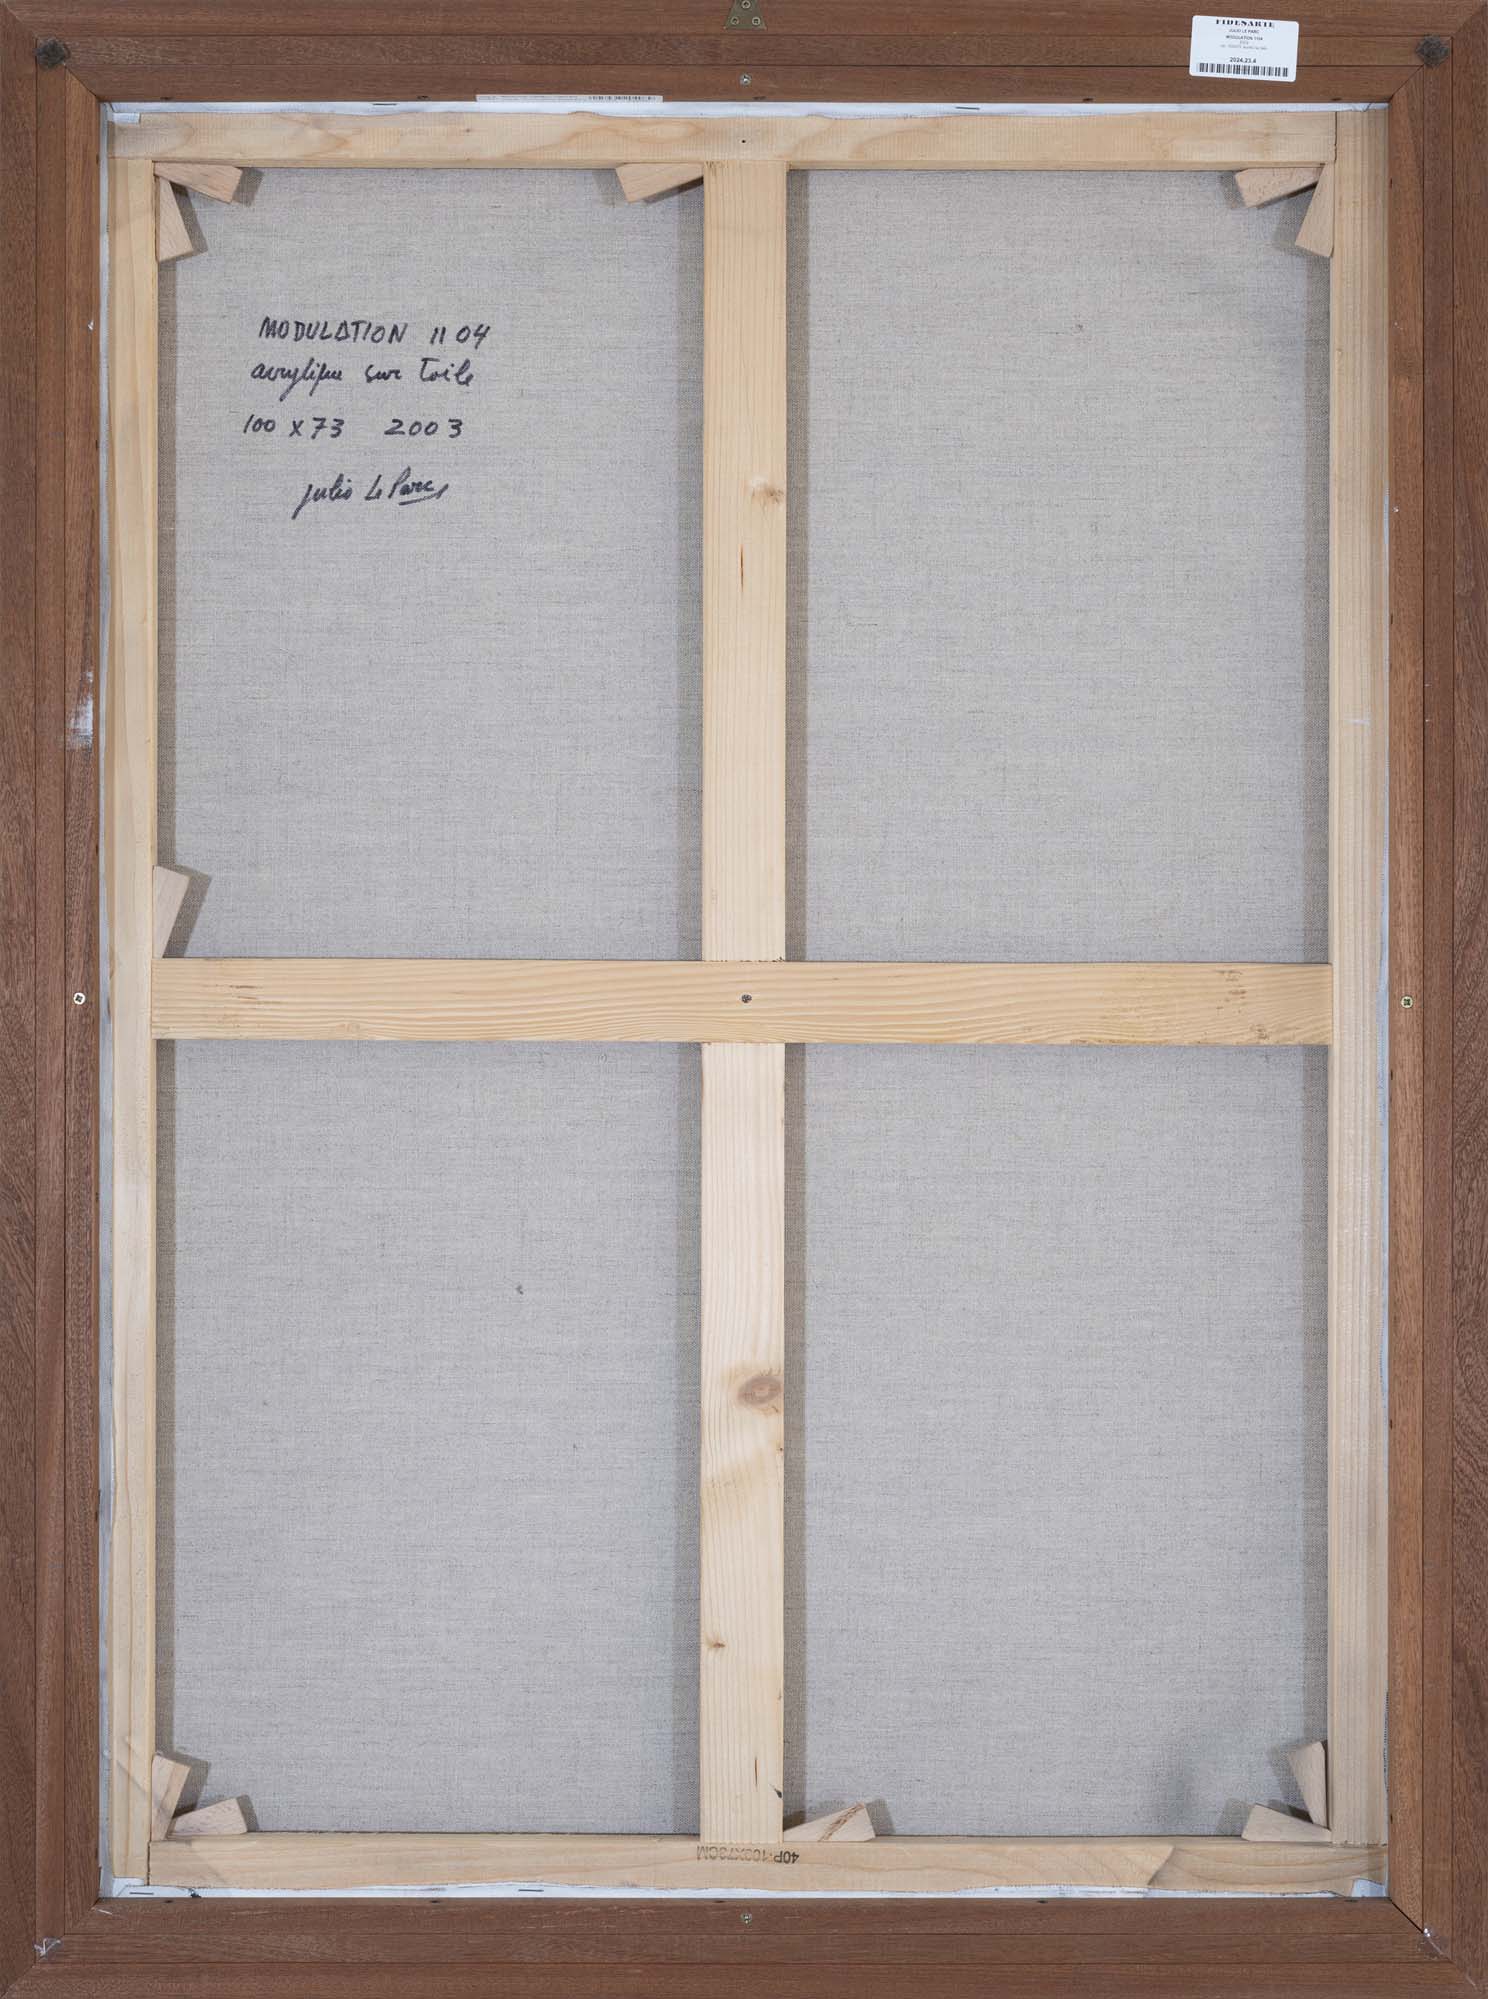 FIDESARTE
JULIO LE PARC
MODULATION 1104
2024.23.4
MODULATION 1104
acrylique sur toile
100 x 73 2003
Julio Le Parc
40P:100X73CM